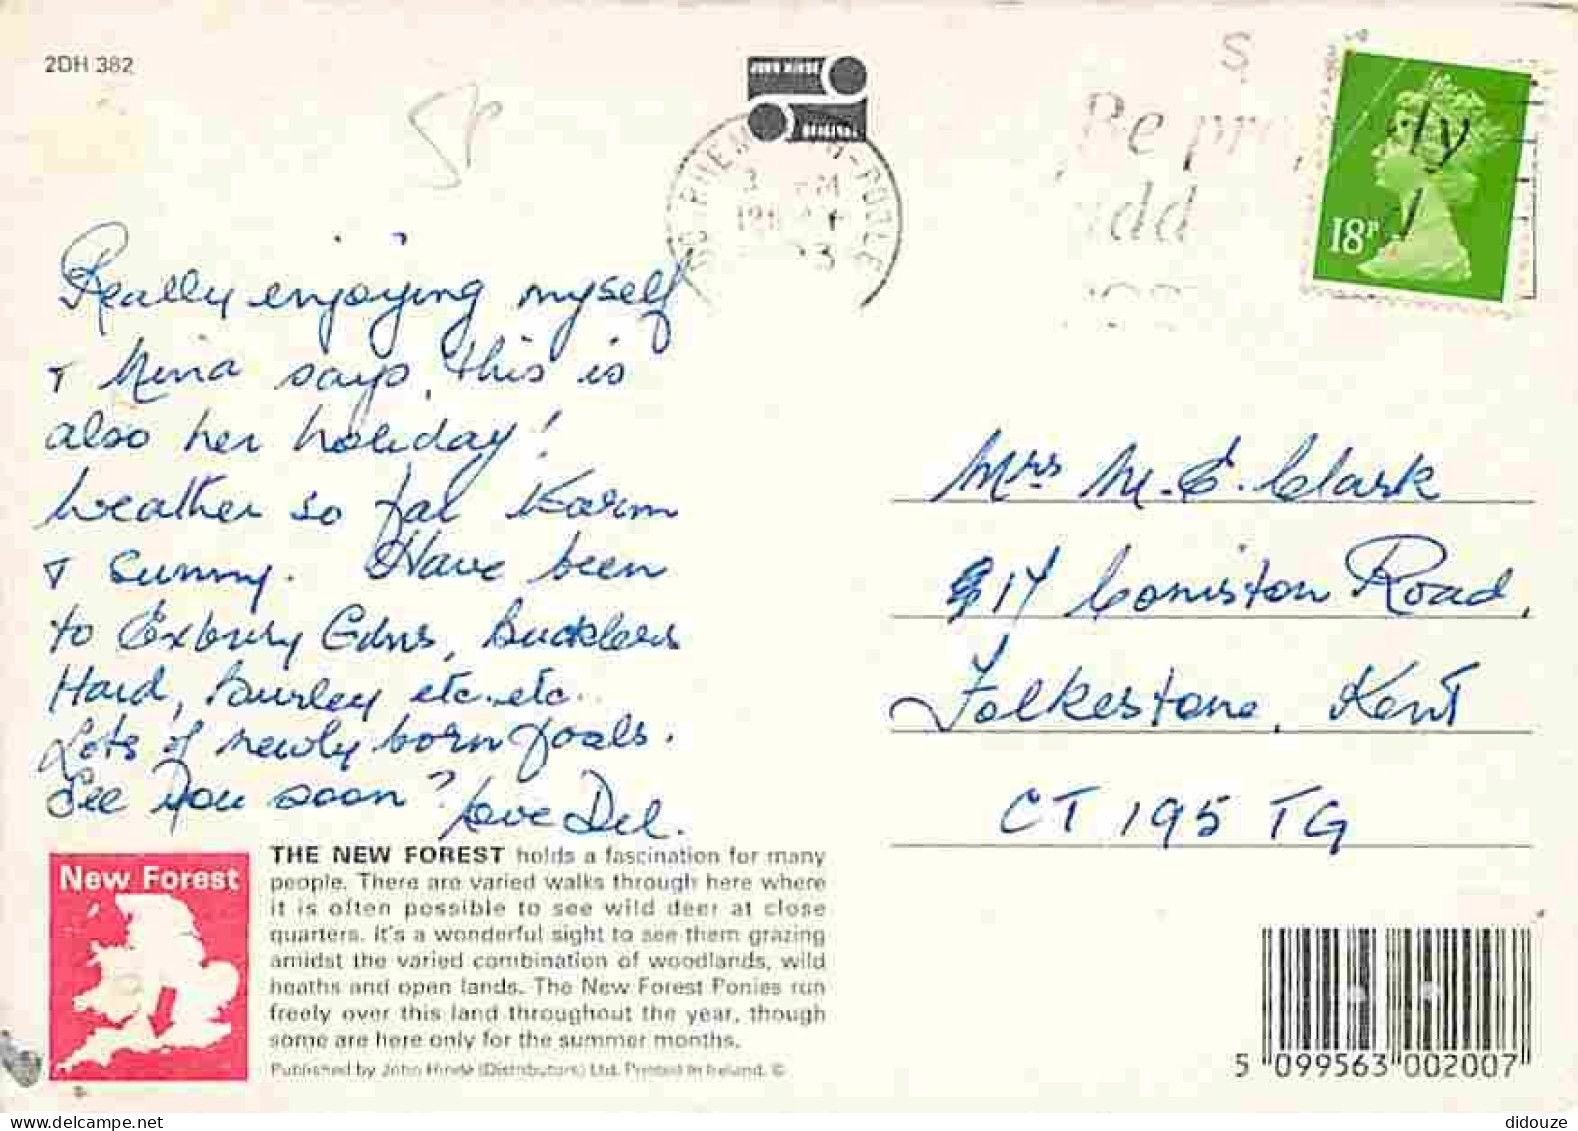 2DH 382
JOHN HINDE
ORIGINAL
5P
S
BOURNEMOUTH-POOLE
Be properly
add
18P
Really enjoying myself
& Nina says, this is
also her holiday!
Weather so far warm
& sunny. Have been
to Exbury Gdns, Bucklers
Hard, Burley etc. etc.
Lots of newly born foals.
See you soon? Love Del.
Mrs M. E. Clark
17 Coniston Road,
Folkestone, Kent
CT 195 TG
New Forest
THE NEW FOREST holds a fascination for many
people. There are varied walks through here where
it is often possible to see wild deer at close
quarters. It's a wonderful sight to see them grazing
amidst the varied combination of woodlands, wild
heaths and open lands. The New Forest Ponies run
freely over this land throughout the year, though
some are here only for the summer months.
Published by John Hinde (Distributors) Ltd. Printed in Ireland. ©
5 099563 002007
didouze